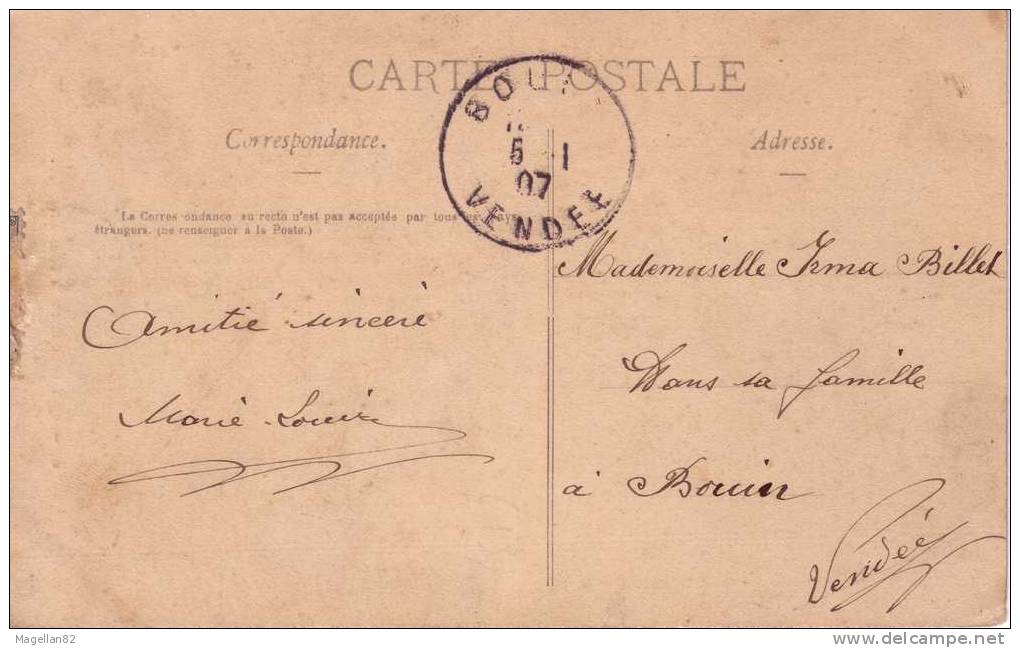 CARTE POSTALE
Correspondance.
Adresse.
BOUI
5 -1
07
VENDEE
La Corres ondance au recto n'est pas acceptée par tous les pays
étrangers. (se renseigner à la Poste.)
Amitié sincère
Marie Louise
Mademoiselle Irma Billet
Dans sa famille
à Bouin
Vendée
Magellan82
www.delcampe.net